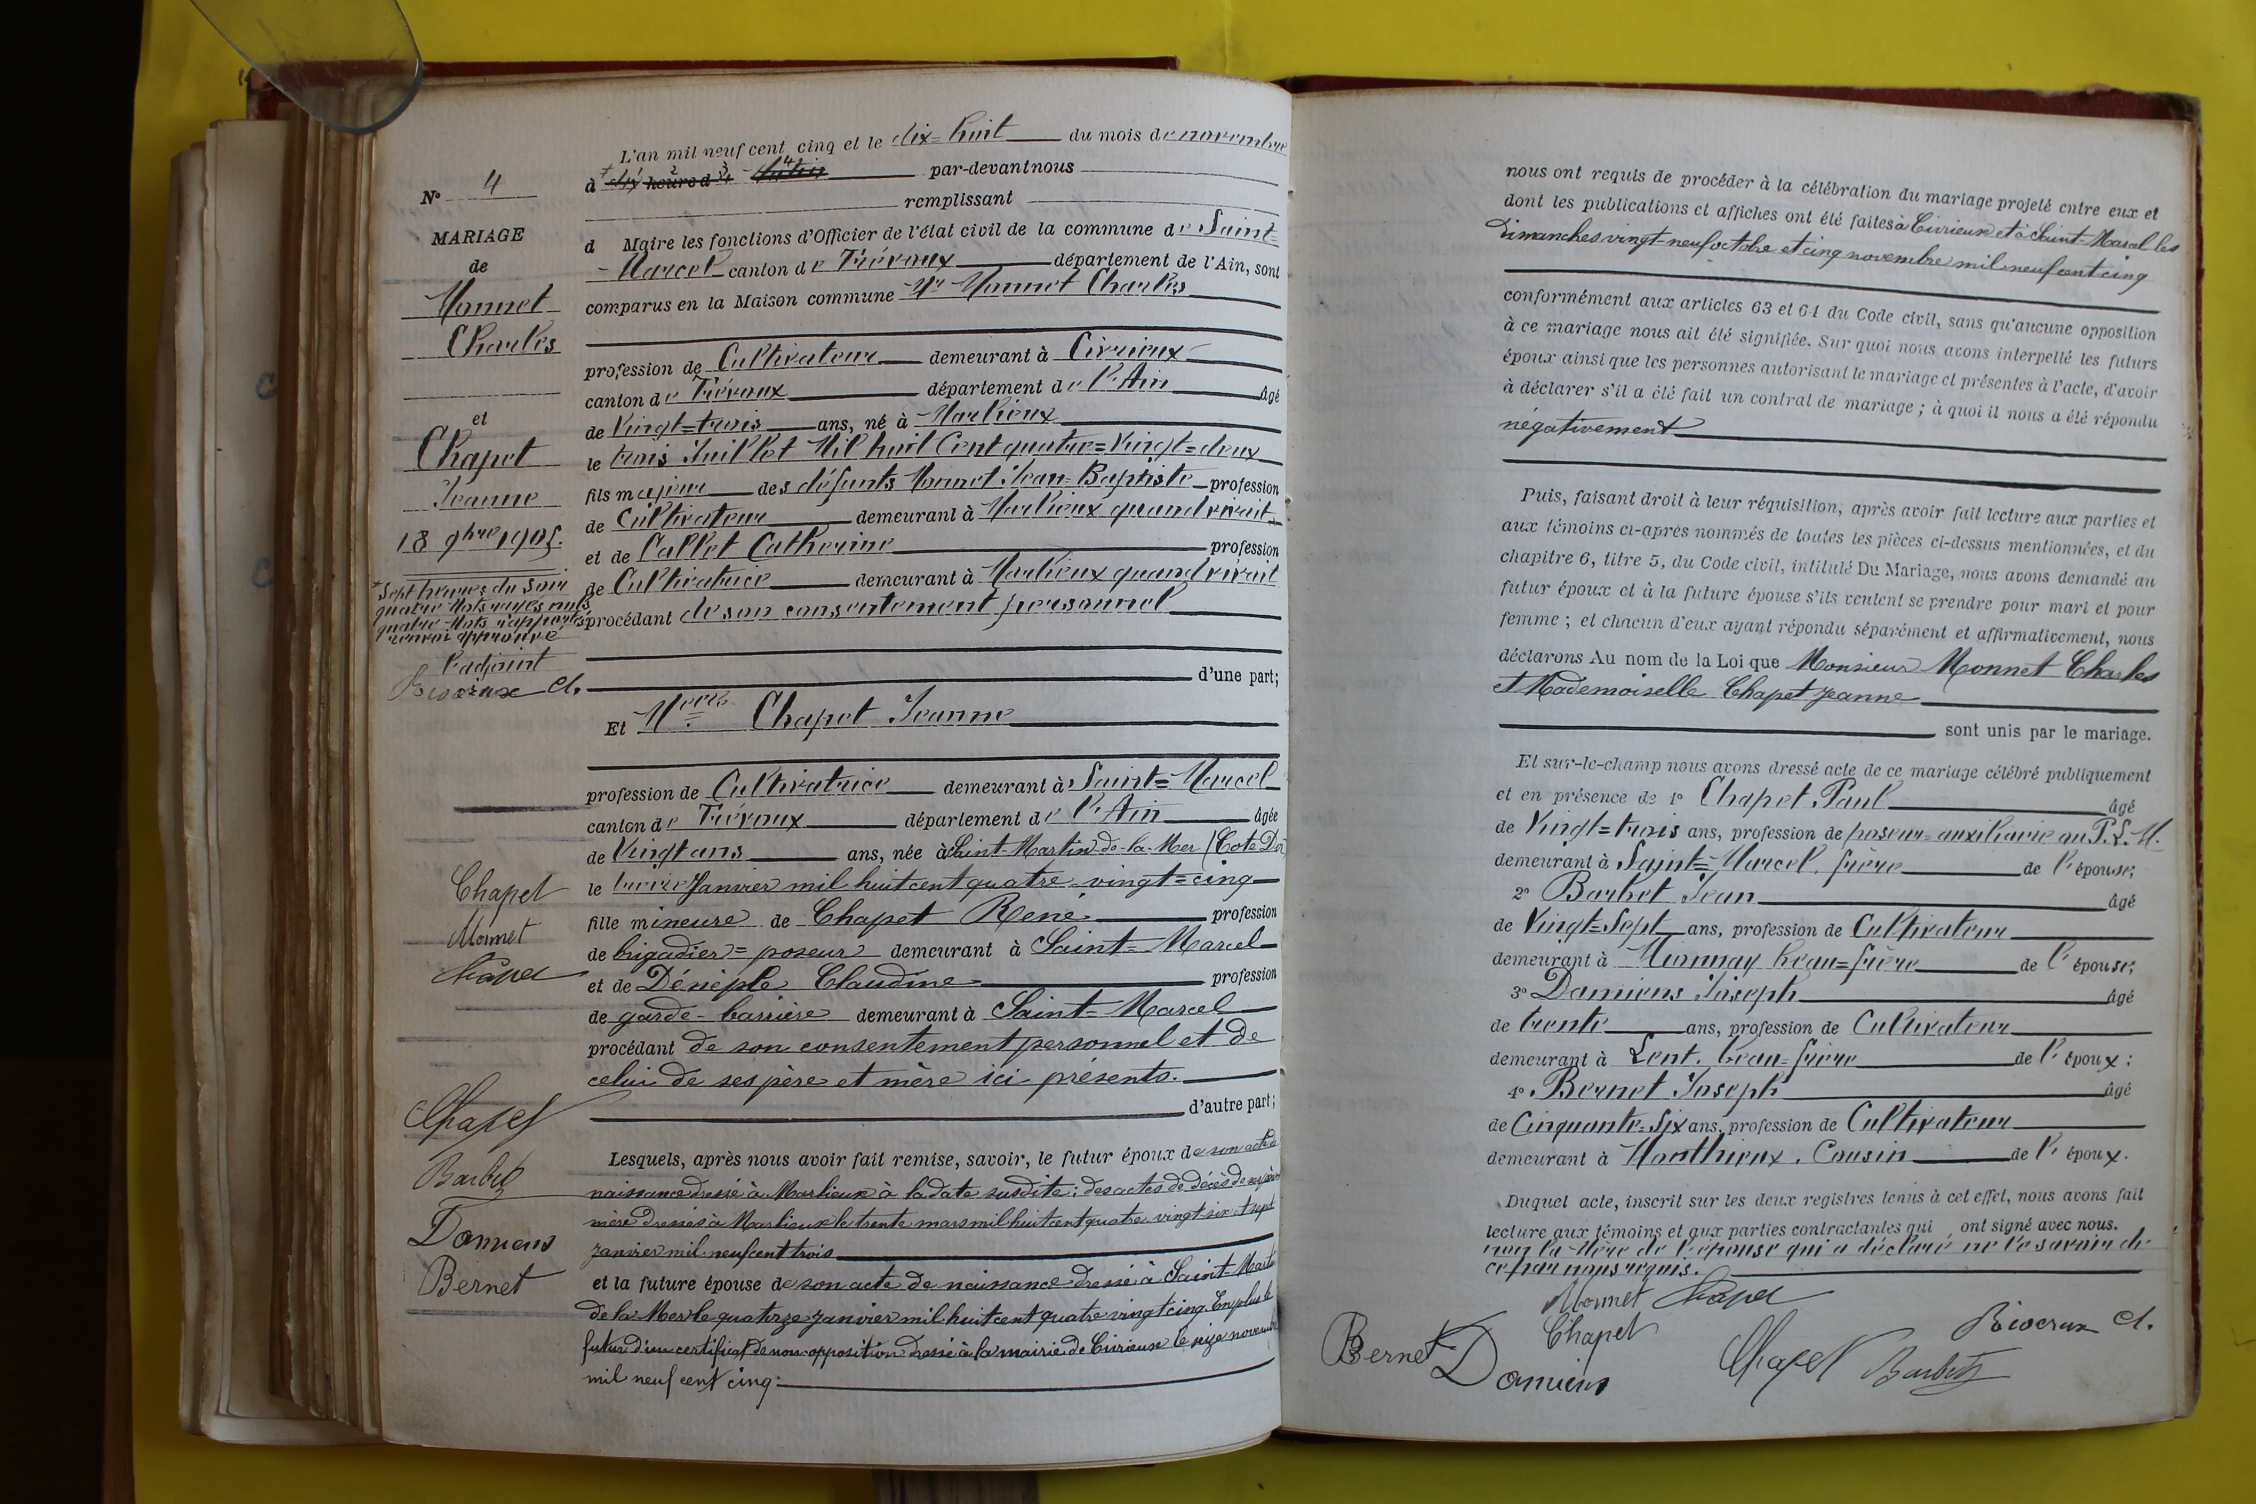 N° 4
MARIAGE
de
Monnet
Charles
et
Chapet
Jeanne
18 9bre 1905.
+ Sept heures du soir
quatre mots rayés nuls
quatre mots rapportés
renvoi approuvé
l'adjoint
Chapet
Monnet
Chapet
Chapet
Barbet
Damiens
Bernet
L'an mil neuf cent cinq et le dix=huit du mois de novembre
à + dix heures d par-devant nous
remplissant
d Maire les fonctions d'Officier de l'état civil de la commune de Saint=
=Marcel canton de Trévoux département de l'Ain, sont
comparus en la Maison commune Mr Monnet Charles
profession de Cultivateur demeurant à Civrieux
canton de Trévoux département de l'Ain âgé
de Vingt=trois ans, né à Marlieux
le trois Juillet Mil huit Cent quatre=Vingt=deux
fils majeur des défunts Monnet Jean=Baptiste profession
de Cultivateur demeurant à Marlieux quand vivait
et de Callet Catherine profession
de Cultivatrice demeurant à Marlieux quand vivait
procédant de son consentement personnel
d'une part;
Et Melle Chapet Jeanne
profession de Cultivatrice demeurant à Saint=Marcel
canton de Trévoux département de l'Ain âgée
de Vingt ans ans, née à Saint-Martin-de-la-Mer (Cote D'or
le treize Janvier mil huit cent quatre-vingt=cinq
fille mineure de Chapet René profession
de brigadier=poseur demeurant à Saint=Marcel
et de Déneple Claudine profession
de garde-barrière demeurant à Saint=Marcel
procédant de son consentement personnel et de
celui de ses père et mère ici présents.
d'autre part;
Lesquels, après nous avoir fait remise, savoir, le futur époux de son acte de
naissance dressé à Marlieux à la date susdite; des actes de décès de ses père et
mère dressés à Marlieux le trente mars mil huit cent quatre vingt-six et sept
janvier mil-neuf cent trois
et la future épouse de son acte de naissance dressé à Saint-Martin
de la Mer le quatorze janvier mil huit cent quatre vingt cinq. En plus le
futur d'un certificat de non-opposition dressé à la mairie de Civrieux le seize novembre
mil neuf cent cinq.
nous ont requis de procéder à la célébration du mariage projeté entre eux et
dont les publications et affiches ont été faites à Civrieux et à Saint-Marcel les
Dimanches vingt-neuf octobre et cinq novembre mil neuf cent cinq
conformément aux articles 63 et 64 du Code civil, sans qu'aucune opposition
à ce mariage nous ait été signifiée. Sur quoi nous avons interpellé les futurs
époux ainsi que les personnes autorisant le mariage et présentes à l'acte, d'avoir
à déclarer s'il a été fait un contrat de mariage; à quoi il nous a été répondu
négativement
Puis, faisant droit à leur réquisition, après avoir fait lecture aux parties et
aux témoins ci-après nommés de toutes les pièces ci-dessus mentionnées, et du
chapitre 6, titre 5, du Code civil, intitulé Du Mariage, nous avons demandé au
futur époux et à la future épouse s'ils veulent se prendre pour mari et pour
femme; et chacun d'eux ayant répondu séparément et affirmativement, nous
déclarons Au nom de la Loi que Monsieur Monnet Charles
et Mademoiselle Chapet Jeanne
sont unis par le mariage.
Et sur-le-champ nous avons dressé acte de ce mariage célébré publiquement
et en présence de 1° Chapet Paul âgé
de Vingt=trois ans, profession de poseur-auxiliaire au P.L.M.
demeurant à Saint=Marcel, frère de l'épouse;
2° Barbet Jean âgé
de Vingt=Sept ans, profession de Cultivateur
demeurant à Mionnay beau=frère de l'épouse;
3° Damiens Joseph âgé
de trente ans, profession de Cultivateur
demeurant à Lent, beau=frère de l'époux;
4° Bernet Joseph âgé
de Cinquante=Six ans, profession de Cultivateur
demeurant à Monthieux, Cousin de l'époux.
Duquel acte, inscrit sur les deux registres tenus à cet effet, nous avons fait
lecture aux témoins et aux parties contractantes qui ont signé avec nous.
non la Mère de l'épouse qui a déclaré ne le savoir de
ce par nous requis.
Monnet Chapet
Bernet Chapet
Damiens Chapet Barbet